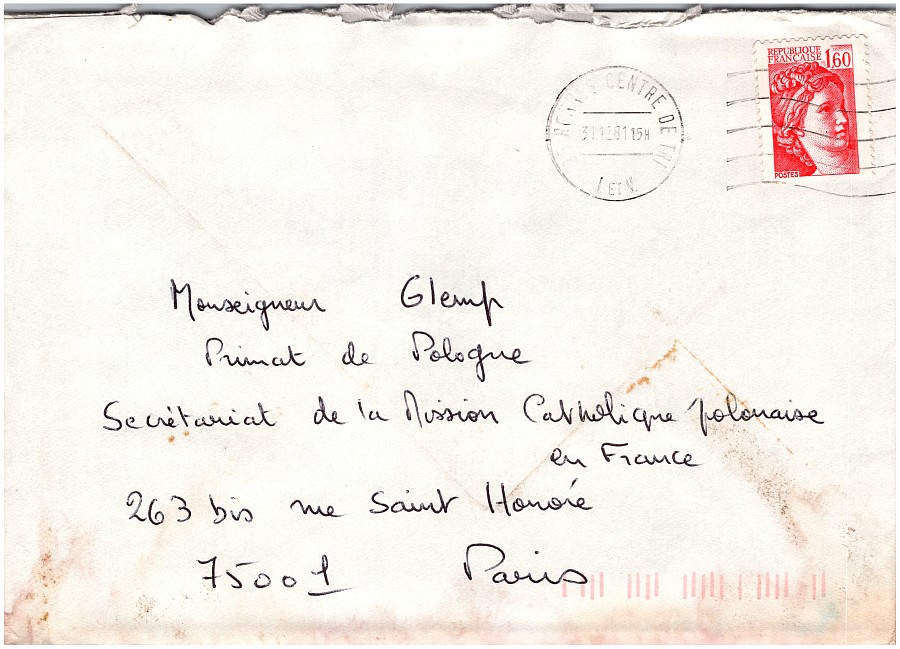 REPUBLIQUE
FRANÇAISE 1,60
POSTES
CENTRE DE TRI
31 12 81 15H
I. ET V.
Monseigneur Glemp
Primat de Pologne
Secrétariat de la Mission Catholique polonaise
en France
263 bis rue Saint Honoré
75001 Paris